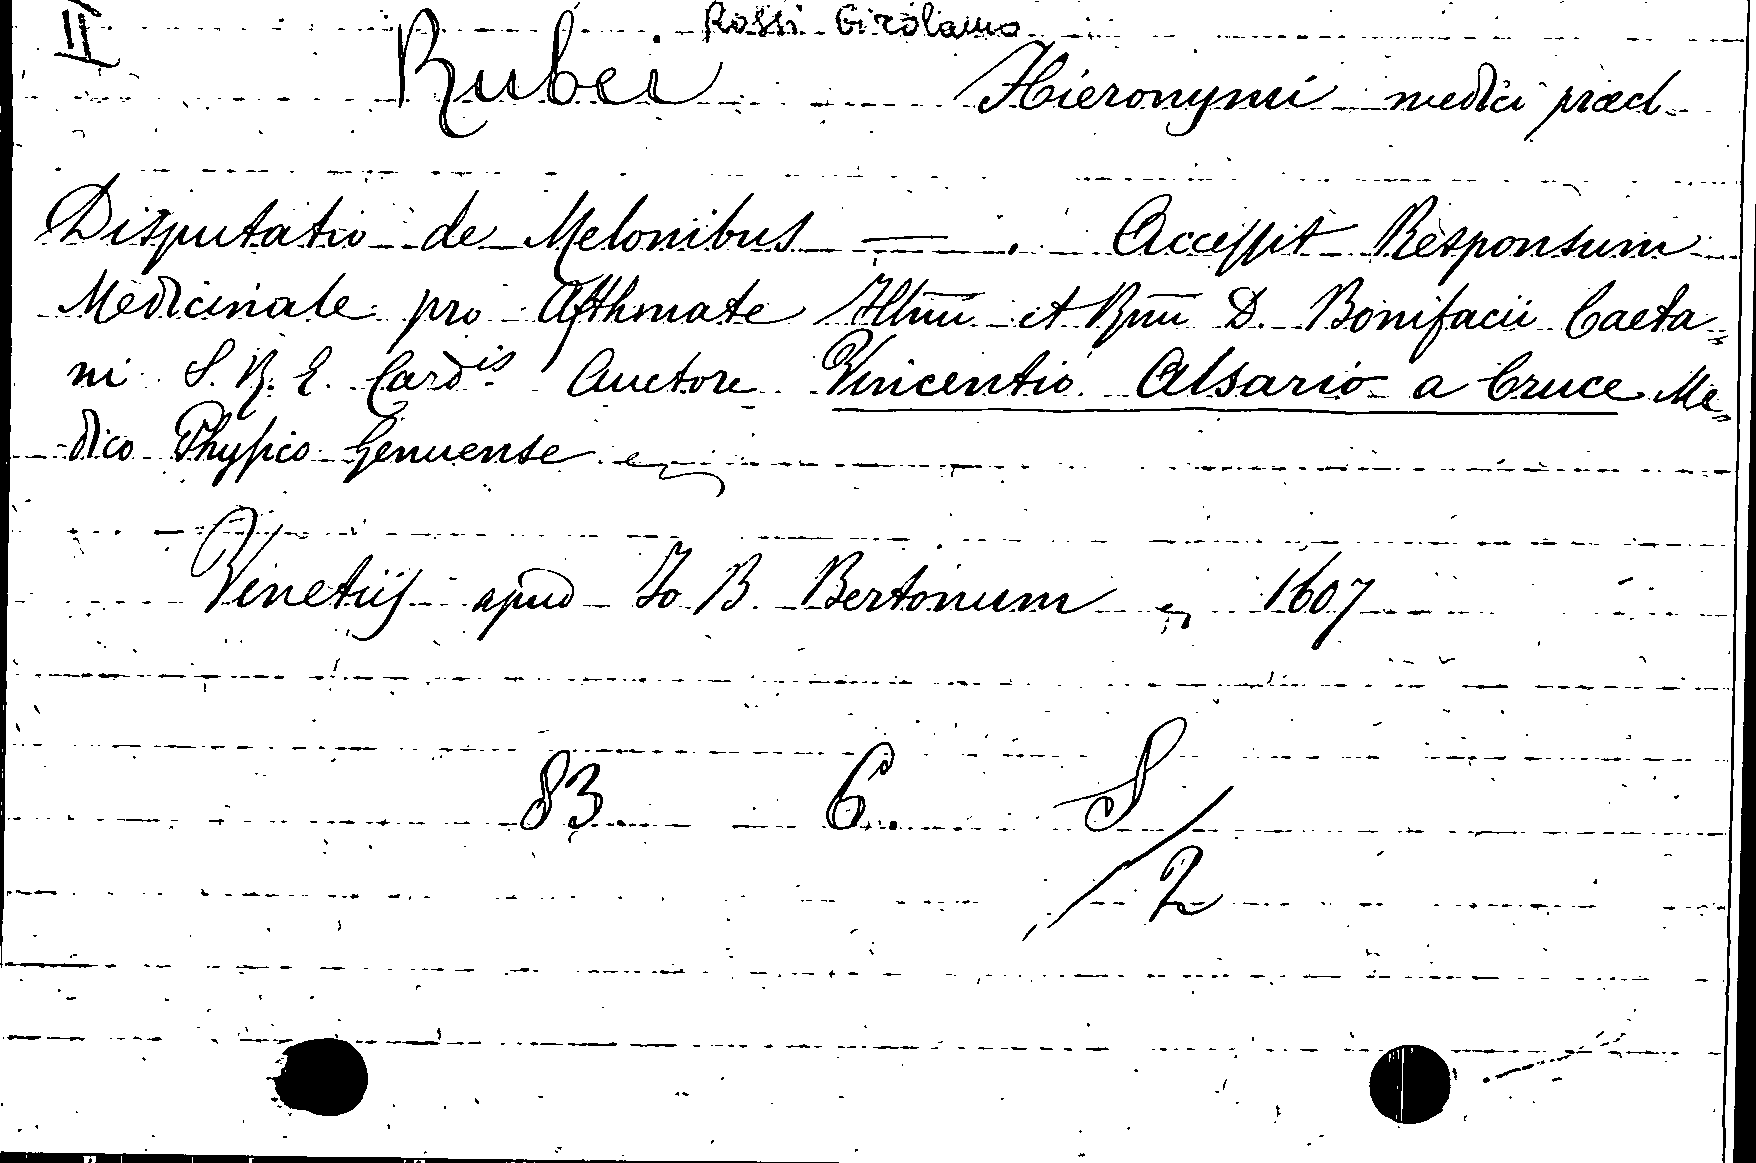 II Rossi Girolamo
Rubei Hieronymi medici præcl.
Disputatio de Melonibus — . Accessit Responsum
Medicinale pro Asthmate Illm̄i et Rm̄i D. Bonifacii Caeta-
ni S. R. E. Cardis Auctore Vincentio Alsario a Cruce Me-
dico Physico Genuense
Venetiis apud Io B. Bertonum 1607
83. 6. S
/ 2